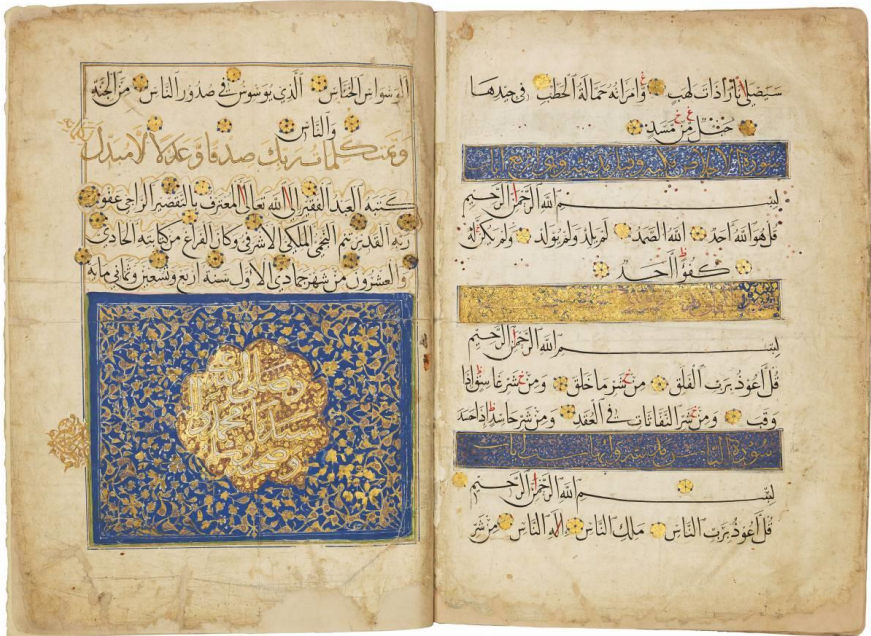 سيصلى نارا ذات لهب وامرأته حمالة الحطب في جيدها
حبل من مسد
سورة الاخلاص مكية وقيل مدنية وهي اربع ايات
بسم الله الرحمن الرحيم
قل هو الله احد الله الصمد لم يلد ولم يولد ولم يكن له
كفوا احد
بسم الله الرحمن الرحيم
قل اعوذ برب الفلق من شر ما خلق ومن شر غاسق اذا
وقب ومن شر النفاثات في العقد ومن شر حاسد اذا حسد
سورة الناس مدنية ست ايات
بسم الله الرحمن الرحيم
قل اعوذ برب الناس ملك الناس اله الناس من شر
الوسواس الخناس الذي يوسوس في صدور الناس من الجنة
والناس
وتمت كلمات ربك صدقا وعدلا لا مبدل
لكلماته
كتبه العبد الفقير الى الله تعالى المعترف بالتقصير الراجي عفو
ربه القدير النجمي الملكي الاشرفي وكان الفراغ من كتابته الحادي
والعشرون من شهر جمادى الاول سنة اربع وتسعين وثماني ماية
وصلى الله
سيدنا محمد
وصحبه